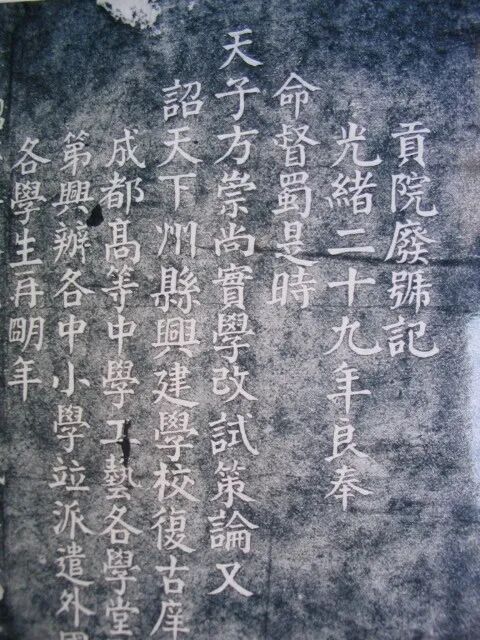 貢院廢號記
光緒二十九年良奉
命督蜀是時
天子方崇尚實學改試策論又
詔天下州縣興建學校復古庠
成都高等中學工藝各學堂
第興辦各中小學竝派遣外國
各學生再明年